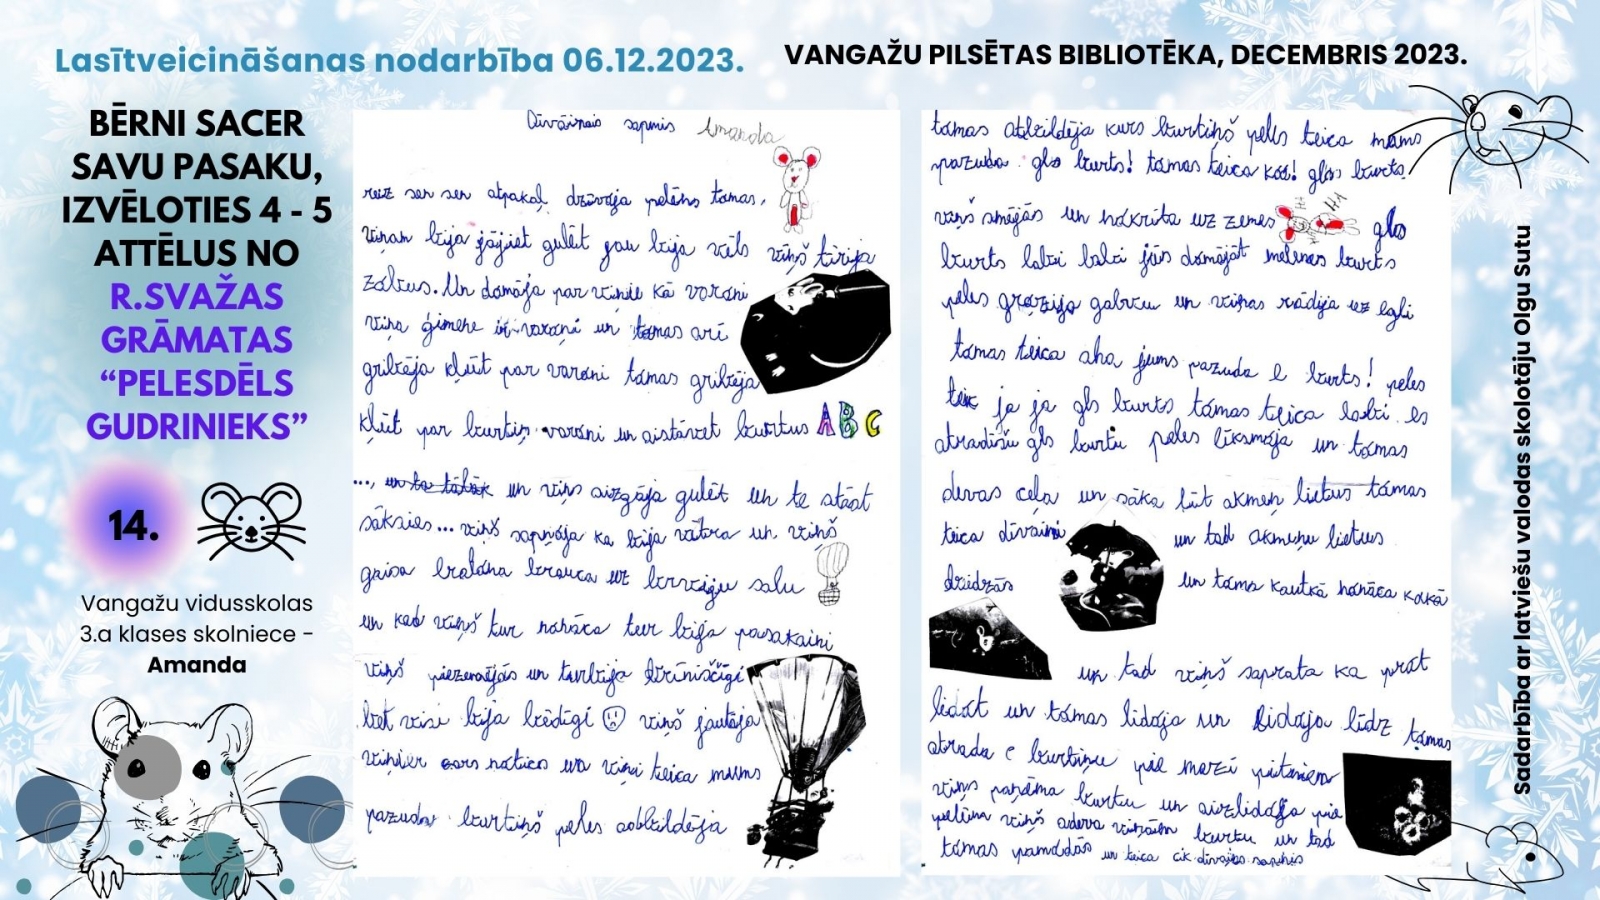 Lasītveicināšanas nodarbība 06.12.2023.
VANGAŽU PILSĒTAS BIBLIOTĒKA, DECEMBRIS 2023.
BĒRNI SACER
SAVU PASAKU,
IZVĒLOTIES 4 - 5
ATTĒLUS NO
R.SVAŽAS
GRĀMATAS
“PELESDĒLS
GUDRINIEKS”
14.
Vangažu vidusskolas
3.a klases skolniece -
Amanda
Dīvainais sapnis Amanda
reiz sen sen atpakaļ dzīvoja pelēns tomas,
viņam bija jājiet gulēt jau bija vēls viņš tīrija
zobus. Un domāja par viņiem kā varoni
viņa ģimene ir varoņi un tomas arī
gribēja kļūt par varoni tomas gribēja
kļūt par burtiņ varoni un aistāvēt burtus ABC
..., un viņš aizgāja gulēt un te stāst
sāksies... viņš sapņoja ka bija vētra un viņš
gaisa balona brauca uz burvīgu salu
un kad viņš tur nonāca tur bija pasakaini
viņš piezemējās un tur bija brīnišķīgi
bet visi bija bēdīgi viņš jautāja
viņiem kas noticis un viņi teica mums
pazuda burtiņš peles atbildēja
tomas atbildēja kurš burtiņš peles teica mums
pazuda glo burts! tomas teica ko! glo burts.
viņš smējās un nokrita uz zemes HI HI glo
burts labi labi jūs domājāt burts
peles grozija galvu un viņas rādija uz egli
tomas teica aha jums pazuda e burts! peles
teic ja ja glo burts tomas teica labi es
atradīšu glo burtu peles līksmoja un tomas
devas ceļa un sāka līt akmeņ lietus tomas
teica dīvaini un tad akmeņu lietus
beidzās un toms kautkā nonāca kokā
un tad viņš saprata ka prot
lidot un tomas lidoja un lidoja līdz tomas
atrada e burtiņu pie mazi pitniem
viņš paņēma burtu un aizlidoja pie
pelēm viņš adeva viņām burtu un tad
tomas pamodās un teica cik dīvains sapnis
Sadarbība ar latviešu valodas skolotāju Olgu Sutu